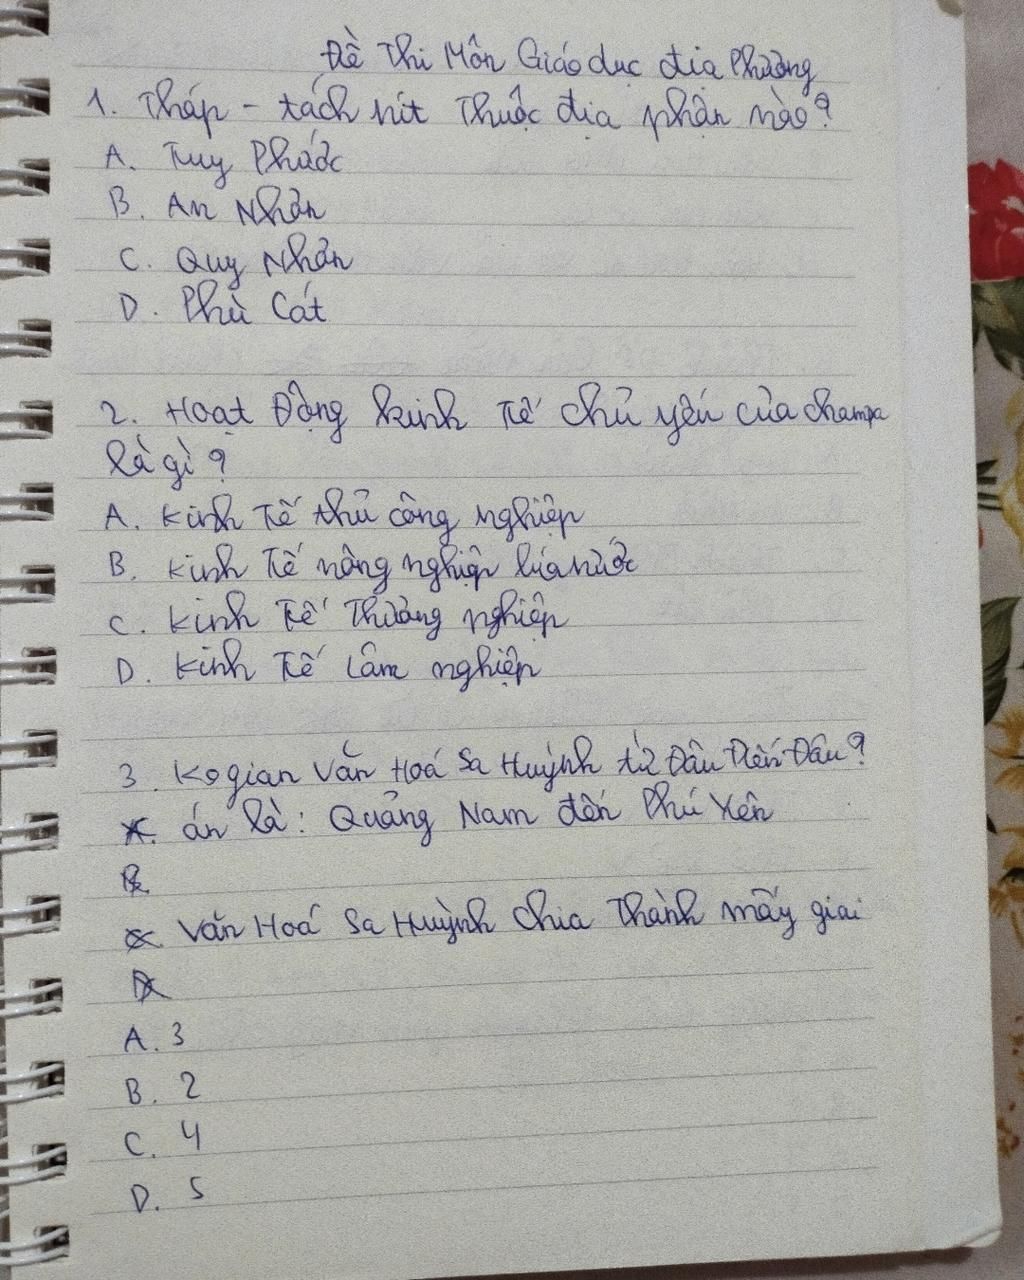 Đề Thi Môn Giáo dục địa Phương
1. Tháp - tách nít Thuộc địa phận nào?
A. Tuy Phước
B. An Nhơn
C. Quy Nhơn
D. Phù Cát
2. Hoạt Động kinh Tế chủ yếu của champa
là gì?
A. Kinh Tế thủ công nghiệp
B. Kinh Tế nông nghiệp lúa nước
C. Kinh Tế Thương nghiệp
D. Kinh Tế Lâm nghiệp
3. Kogian Văn Hoá Sa Huỳnh từ Đâu Đến Đâu?
án là: Quảng Nam đến Phú Yên
Văn Hoá Sa Huỳnh chia Thành mấy giai
A. 3
B. 2
C. 4
D. 5